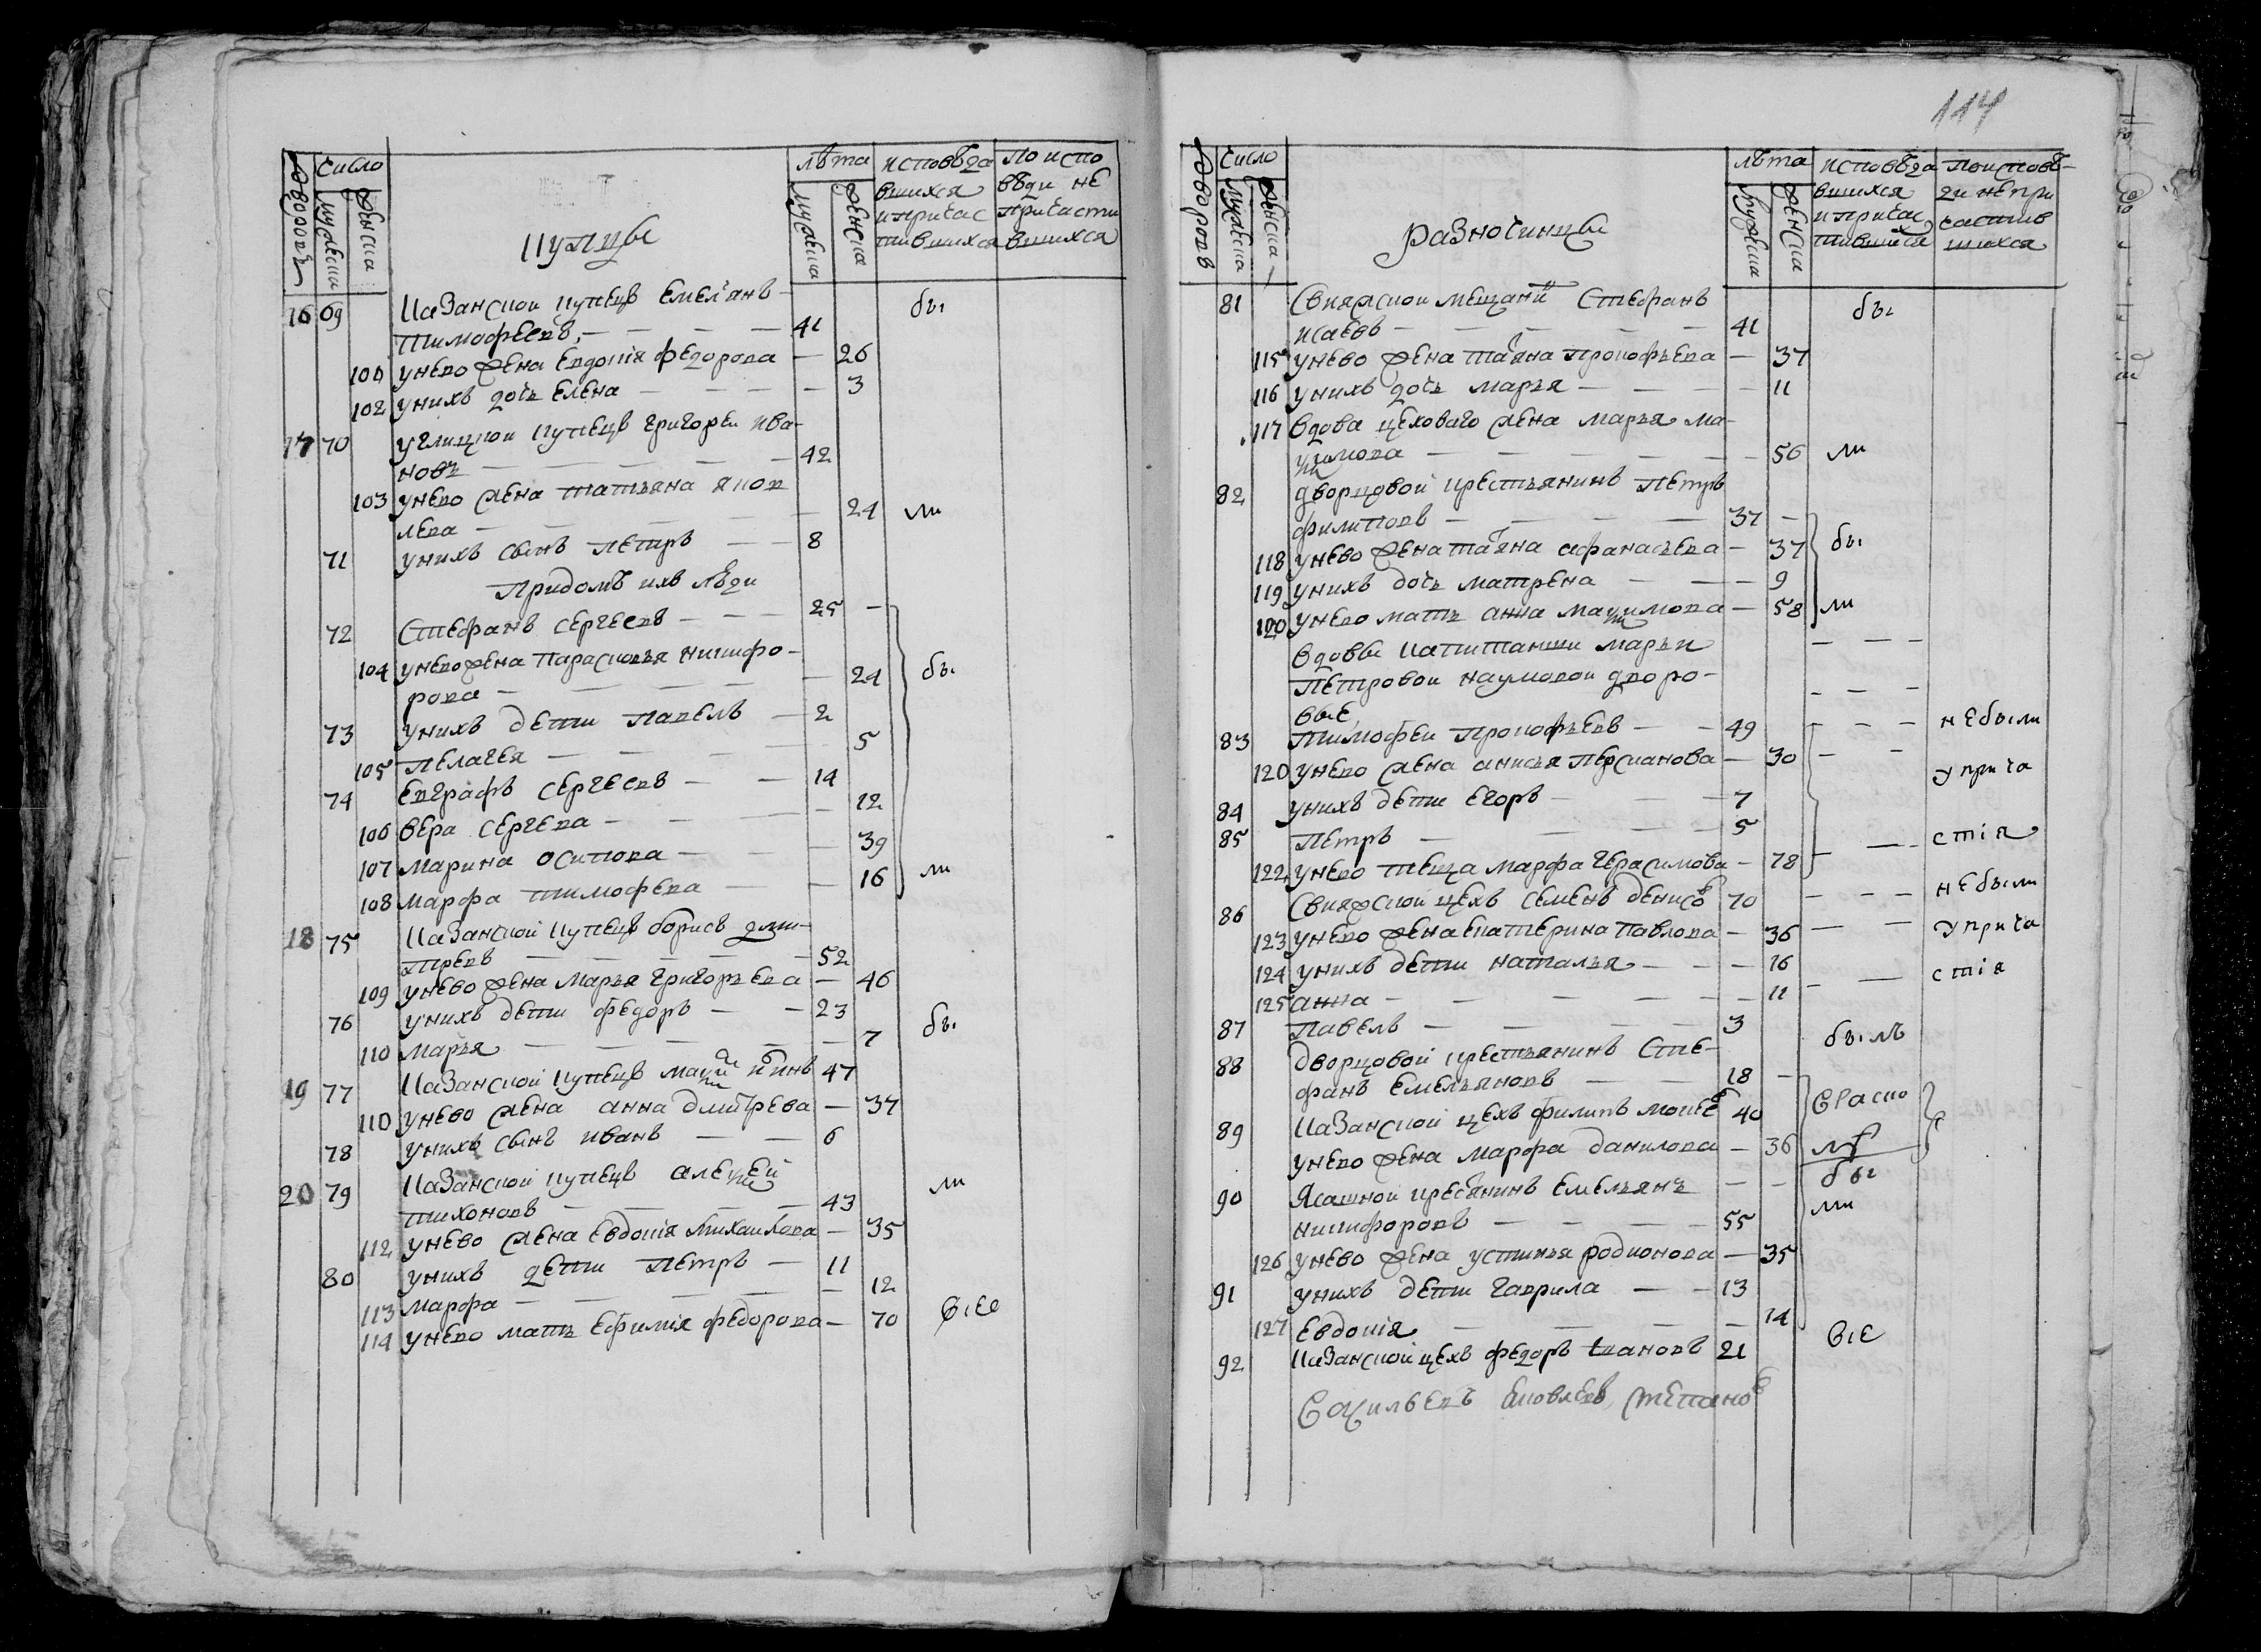 дворовъ число лѣта исповѣда по испо
мужеска женска купцы мужеска женска вшихся вѣди не
и причас причасти
тившихся вшихся
16 69 казанскои купецъ емельянъ бы
тимофеевъ 41
101 унево жена евдокiя федорова 26
102 унихъ дочь елена 3
17 70 углицкои купецъ григореи ива-
новъ 42
103 унево жена татьяна яков
лева 24 ли
71 унихъ сынъ петръ 8
придомѣ ихъ люди
72 стефанъ сергеевъ 25
104 унево жена парасковья никифо-
рова 24 бы
73 унихъ дети павелъ 2
105 пелагея 5
74 евграфъ сергеевъ 14
106 вера сергева 12
107 марина осипова 39
108 марфа тимофева 16 ли
18 75 казанскои купецъ борисъ дми-
тревъ 52
109 унево жена марья григорьева 46
76 унихъ дети федоръ 23
110 марья 7 бы
19 77 казанскои купецъ 47
110 унево жена анна дмитрева 37
78 унихъ сынъ иванъ 6
20 79 казанскои купецъ алексей ли
тихоновъ 43
112 унево жена евдокiя михаилова 35
80 унихъ дети петръ 11
113 марфа 12
114 унево мать ефимiя федорова 70 всe
114
дворовъ число лѣта исповѣда поисповѣ-
мужеска женска разночинцы мужеска женска вшихся ди непри
и причас частив
тившихся шихся
81 свияжскои мещанинъ стефанъ бы
исаевъ 41
115 унево жена татьяна прокофьева 37
116 унихъ дочь марья 11
117 вдова цеховаго жена марья ма-
ксимова 56 ли
82 дворцовой крестьянинъ петръ
филиповъ 37
118 унево жена татьяна афанасьева 37 бы
119 унихъ дочь матрена 9
120 унево мать анна максимова 58 ли
вдовы капитанши марьи
петровои наумовои дворо-
вые
83 тимофеи прокофьевъ 49 небыли
120 унево жена анисья персианова 30
у прича
84 унихъ дети егоръ 7
85 петръ 5 стiя
122 унево теща марфа герасимова 78
86 свияжскои цехъ семенъ денисов 70 небыли
123 унево жена екатерина павлова 36 у прича
124 унихъ дети наталья 16
125 анна 11 стiя
87 павелъ 3
88 дворцовой крестьянинъ сте- былъ
фанъ емельяновъ 18
89 казанскои цехъ филипъ 40
унево жена марфа данилова 36
90 ясашной крестянинъ емельянъ бы
никифоровъ 55 ли
126 унево жена устинья родионова 35
91 унихъ дети гаврила 13
127 евдокiя 14
92 казанскои цехъ федоръ 21 всe